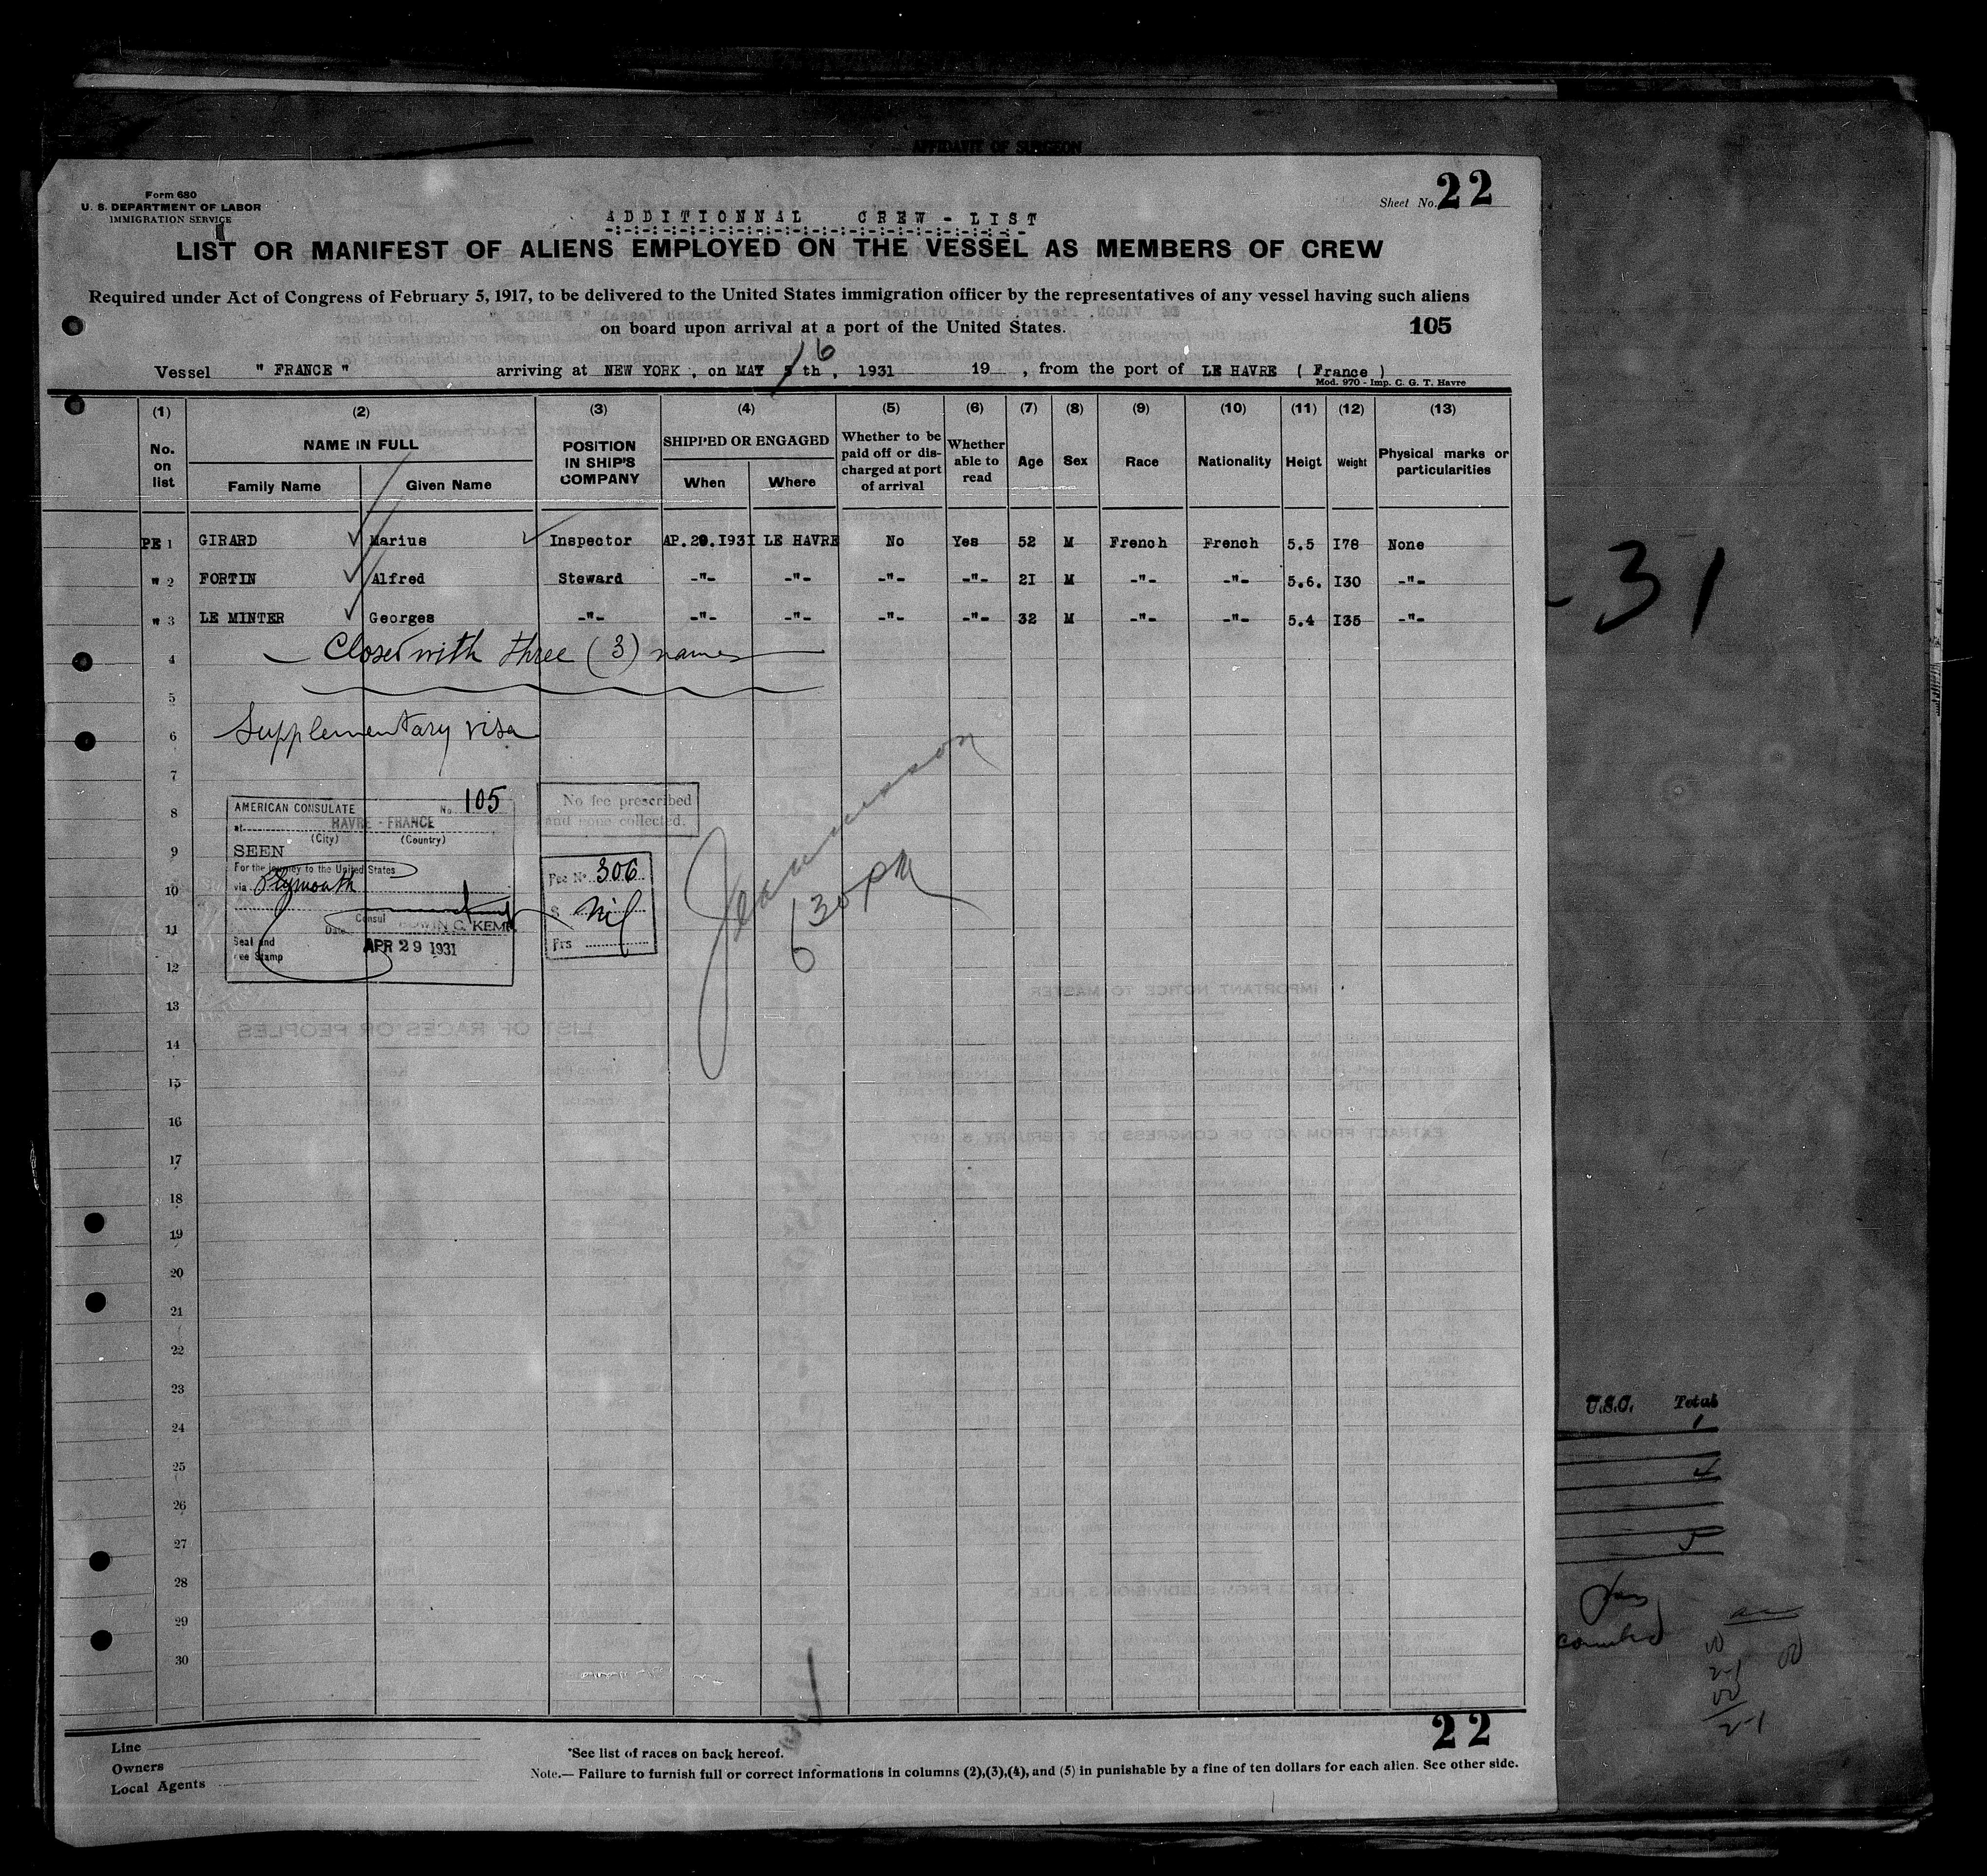 AFFIDAVIT OF SURGEON
Form 680
U. S. DEPARTMENT OF LABOR
IMMIGRATION SERVICE
Sheet No. 22
ADDITIONNAL CREW - LIST
LIST OR MANIFEST OF ALIENS EMPLOYED ON THE VESSEL AS MEMBERS OF CREW
Required under Act of Congress of February 5, 1917, to be delivered to the United States immigration officer by the representatives of any vessel having such aliens
on board upon arrival at a port of the United States.
105
6
Vessel " FRANCE " arriving at NEW YORK , on MAY 5 th , 1931 19 , from the port of LE HAVRE ( France )
Mod. 970 - Imp. C. G. T. Havre
(1) (2) (3) (4) (5) (6) (7) (8) (9) (10) (11) (12) (13)
No. on list NAME IN FULL Family Name Given Name POSITION IN SHIP'S COMPANY SHIPPED OR ENGAGED When Where Whether to be paid off or discharged at port of arrival Whether able to read Age Sex Race Nationality Heigt Weight Physical marks or particularities
PE 1 GIRARD Marius Inspector AP.29.I93I LE HAVRE No Yes 52 M French French 5.5 I78 None
" 2 FORTIN Alfred Steward -"- -"- -"- -"- 2I M -"- -"- 5.6. I30 -"-
" 3 LE MINTER Georges -"- -"- -"- -"- -"- 32 M -"- -"- 5.4 I35 -"-
4 Closed with three (3) names
5
6 Supplementary visa
7
8
9
10
11
12
13
14
15
16
17
18
19
20
21
22
23
24
25
26
27
28
29
30
AMERICAN CONSULATE No. 105
at HAVRE - FRANCE
(City) (Country)
SEEN
For the journey to the United States
via Plymouth
Consul
EDWIN C. KEMP
Date APR 29 1931
Seal and
Fee Stamp
No fee prescribed
and none collected.
Fee No. 306
$ nil
Frs
630 PM
31
U.S.C. Total
22
Line
Owners
Local Agents
*See list of races on back hereof.
Note.— Failure to furnish full or correct informations in columns (2),(3),(4), and (5) in punishable by a fine of ten dollars for each alien. See other side.